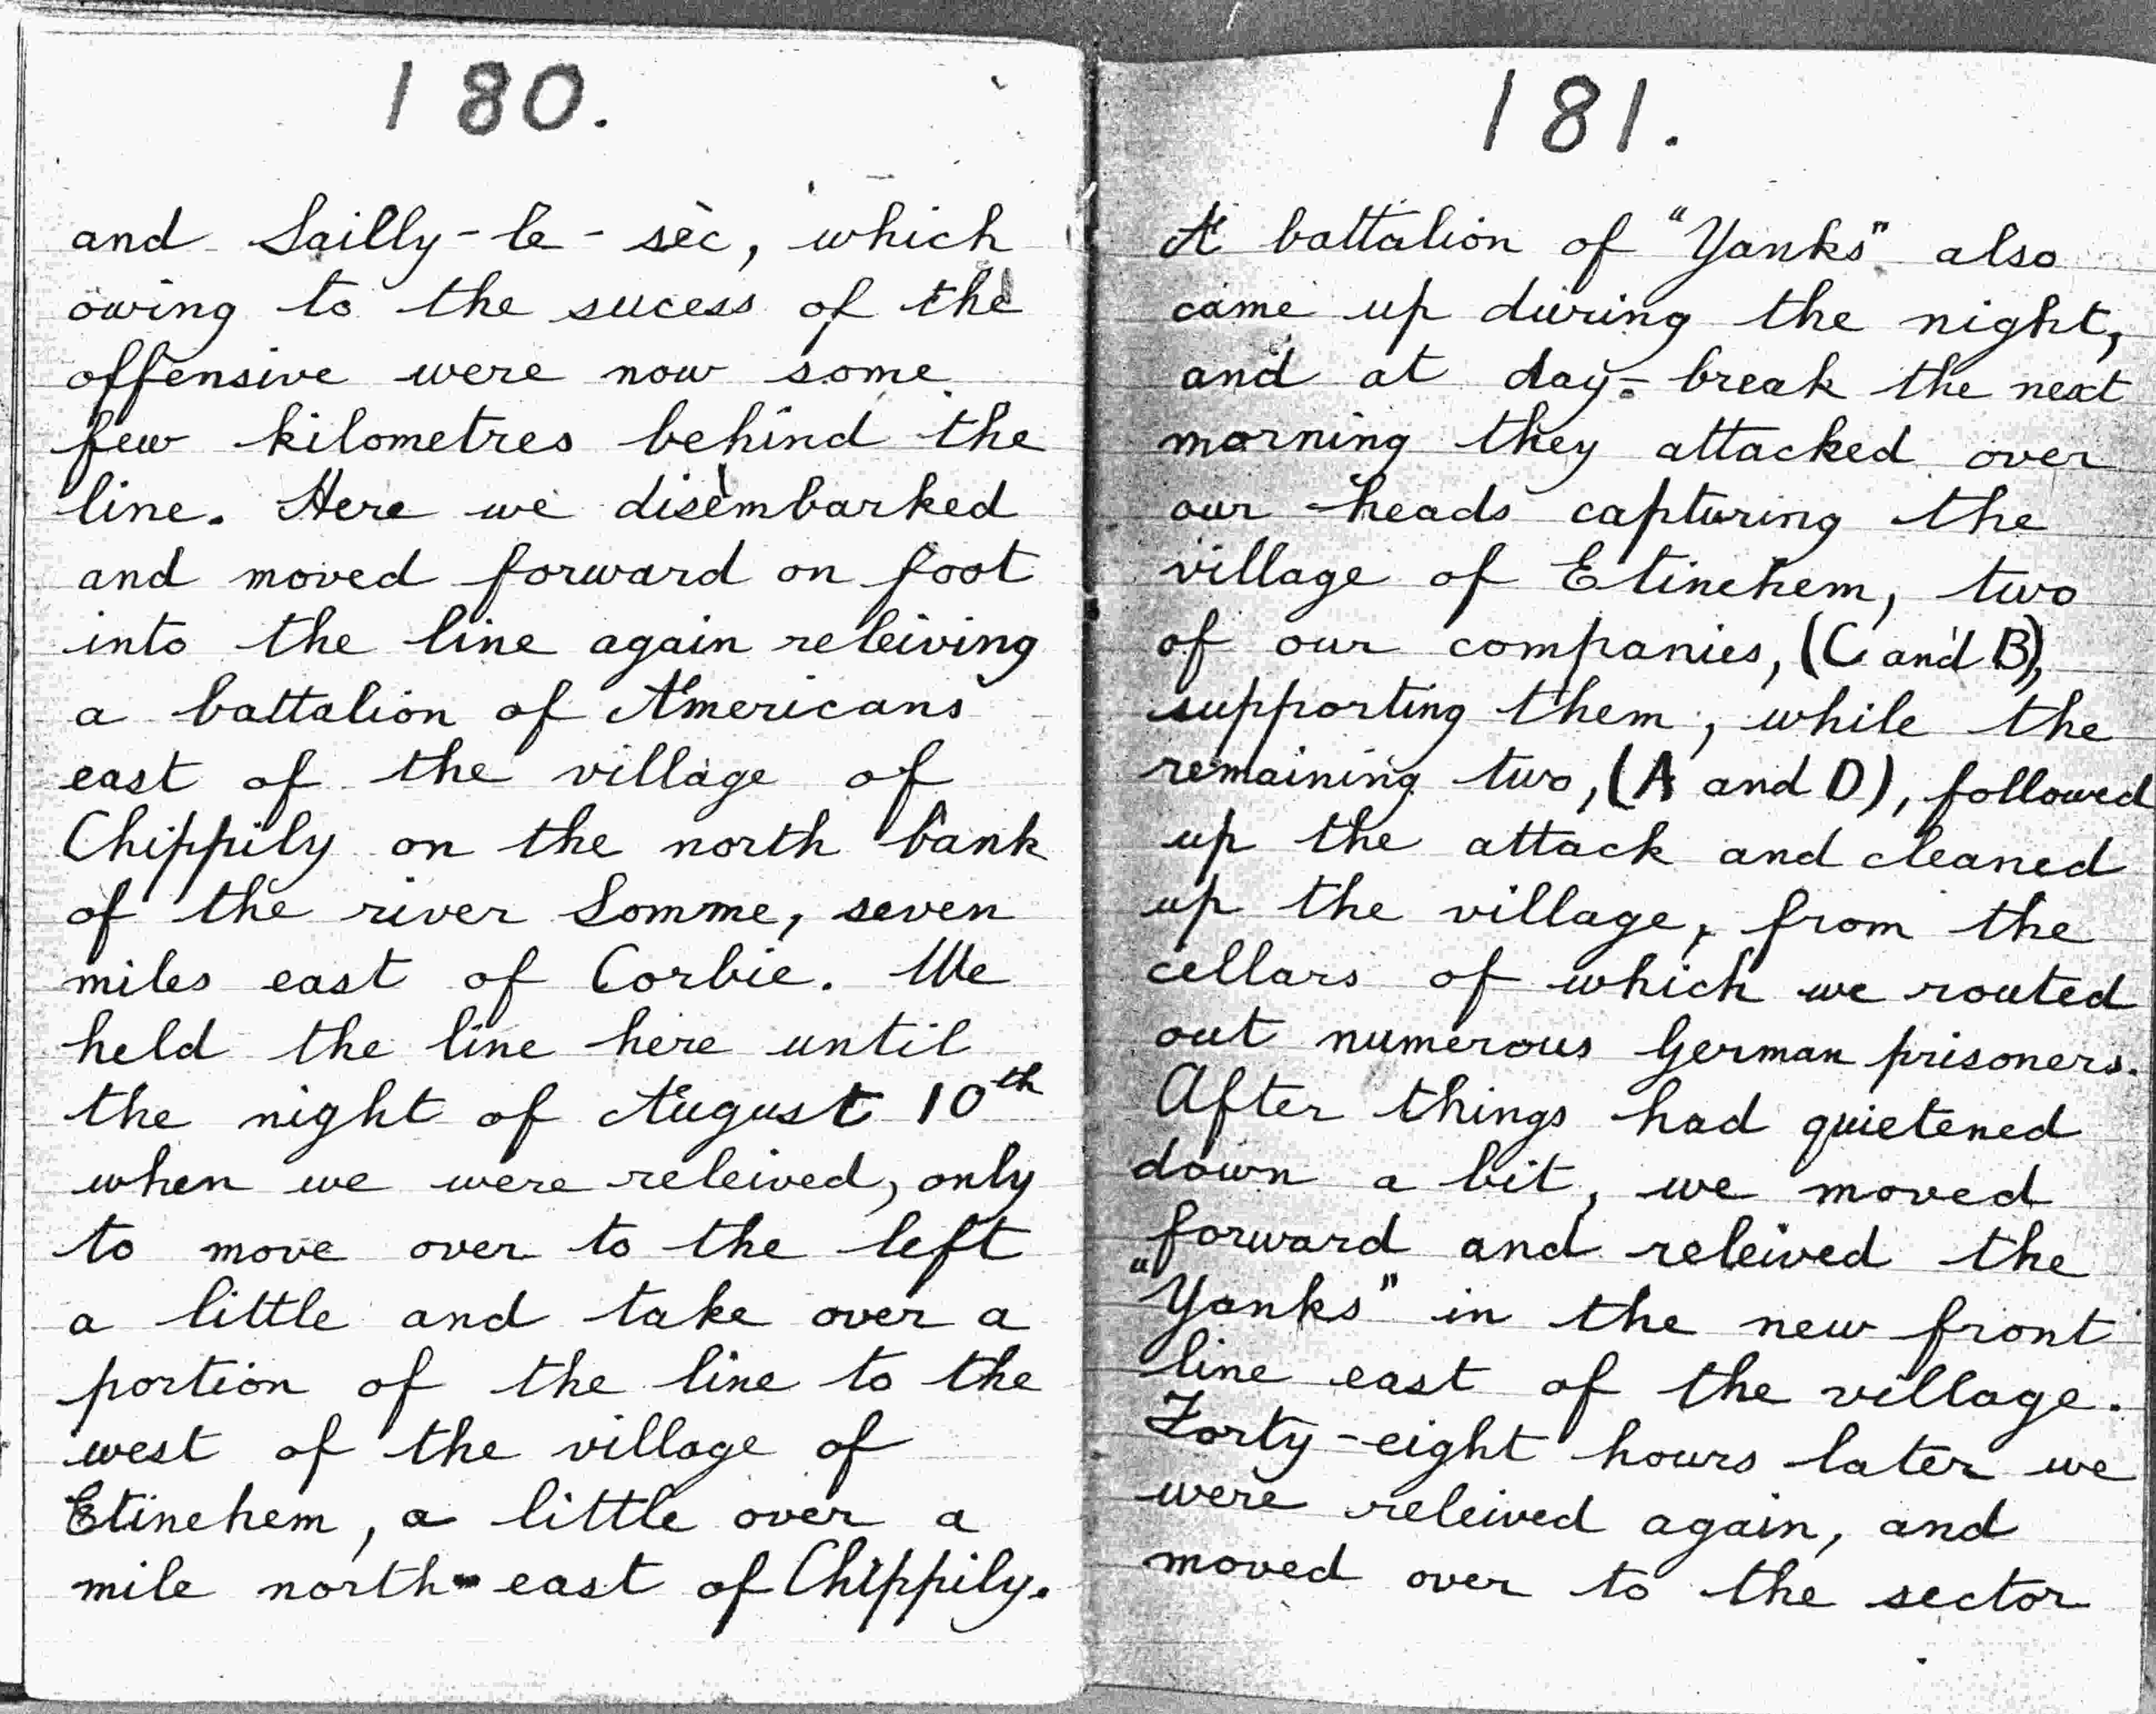 180.
and Sailly-le-sèc, which
owing to the sucess of the
offensive were now some
few kilometres behind the
line. Here we disembarked
and moved forward on foot
into the line again releiving
a battalion of Americans
east of the village of
Chippily on the north bank
of the river Somme, seven
miles east of Corbie. We
held the line here until
the night of August 10th
when we were releived, only
to move over to the left
a little and take over a
portion of the line to the
west of the village of
Etinehem, a little over a
mile north-east of Chippily.
181.
A battalion of "Yanks" also
came up during the night,
and at day-break the next
morning they attacked over
our heads capturing the
village of Etinehem, two
of our companies, (C and B),
supporting them, while the
remaining two, (A and D), followed
up the attack and cleaned
up the village, from the
cellars of which we routed
out numerous German prisoners.
After things had quietened
down a bit, we moved
forward and releived the
"Yanks" in the new front
line east of the village.
Forty-eight hours later we
were releived again, and
moved over to the sector